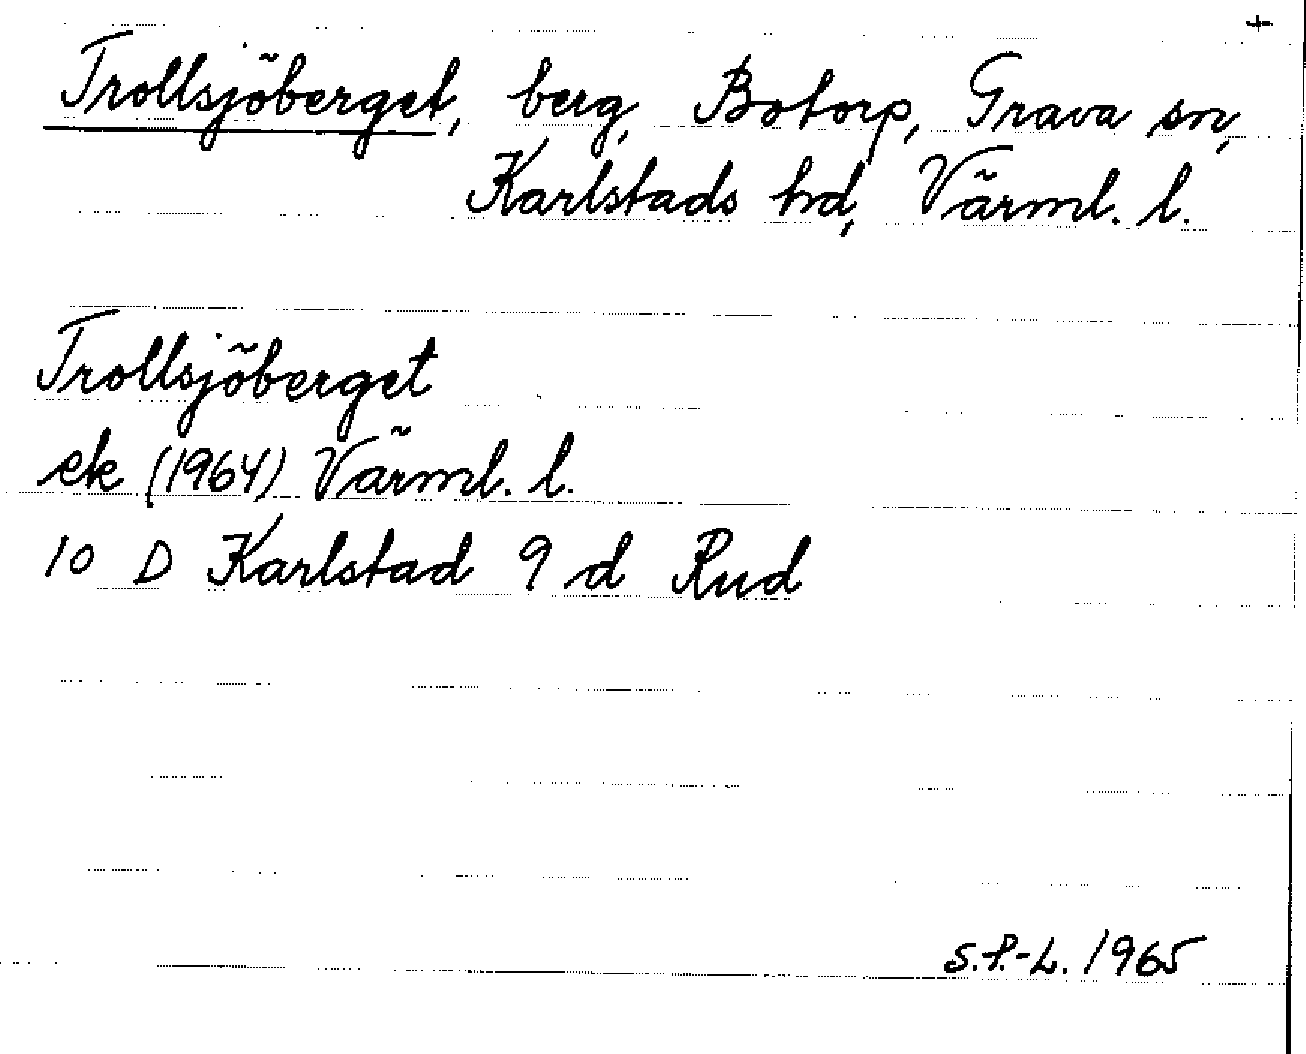 +
Trollsjöberget, berg, Botorp, Grava sn,
Karlstads hd, Värml. l.
Trollsjöberget
ek (1964) Värml. l.
10 D Karlstad 9 d Rud
S.P.-L. 1965